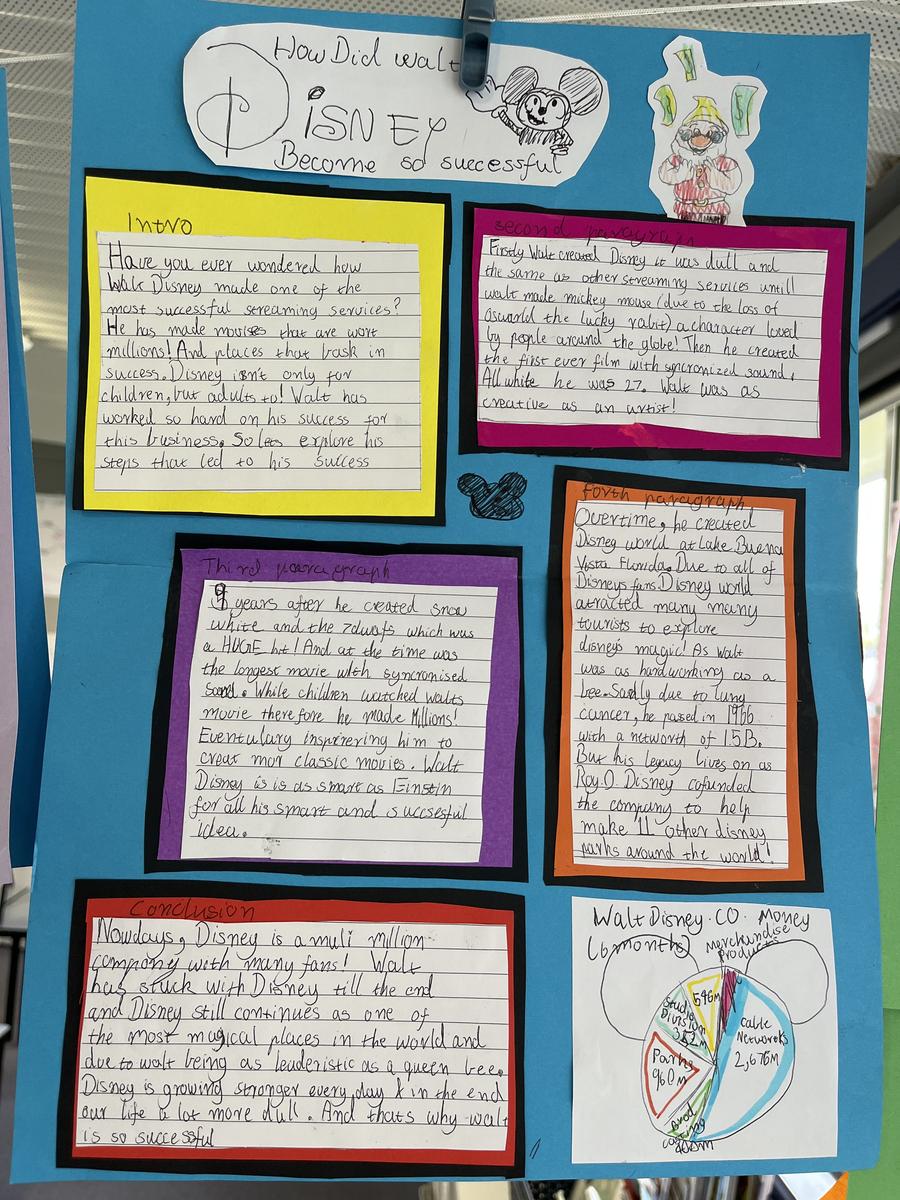 How Did walt
DiSNEY
Become so successful
Intro
Have you ever wondered how
Walt Disney made one of the
most successful streaming services?
He has made movies that are wort
millions! And places that bask in
success. Disney isn't only for
children, but adults to! Walt has
worked so hard on his success for
this business. So lets explore his
steps that led to his success
second paragraph
Firstly Walt created Disney it was dull and
the same as other streaming services untill
walt made mickey mouse (due to the loss of
Osworld the lucky rabit) a character loved
by people around the globe! Then he created
the first ever film with syncronized sound,
All white he was 27. Walt was as
creative as an artist!
Third paragraph
9 years after he created snow
white and the 7dwafs which was
a HUGE hit! And at the time was
the longest movie with syncronised
sound. While children watched walts
movie therefore he made Millions!
Eventulary inspirering him to
creat mor classic movies. Walt
Disney is is as smart as Einstin
for all his smart and succsesful
idea.
forth paragraph
Overtime, he created
Disney world at Lake Buena
Vista Florida. Due to all of
Disneys fans. Disney world
atracted many many
tourists to explore
disneys magic! As Walt
was as hardworking as a
bee. Sadly due to lung
cancer, he passed in 1966
with a networth of 1.5B.
But his legacy lives on as
Roy O. Disney cofunded
the company to help
make 11 other disney
parks around the world!
Conclusion
Nowdays, Disney is a muli million
compony with many fans! Walt
has stuck with Disney till the end
and Disney still continues as one of
the most magical places in the world and
due to walt being as leaderistic as a queen bee.
Disney is growing stronger every day & in the end
our life is lot more dull. And thats why walt
is so successful
Walt Disney. CO. Money
(6 months)
Merchandise
Products
546m
Studio
Division
352m
Cable
Networks
2,676m
Parks
960m